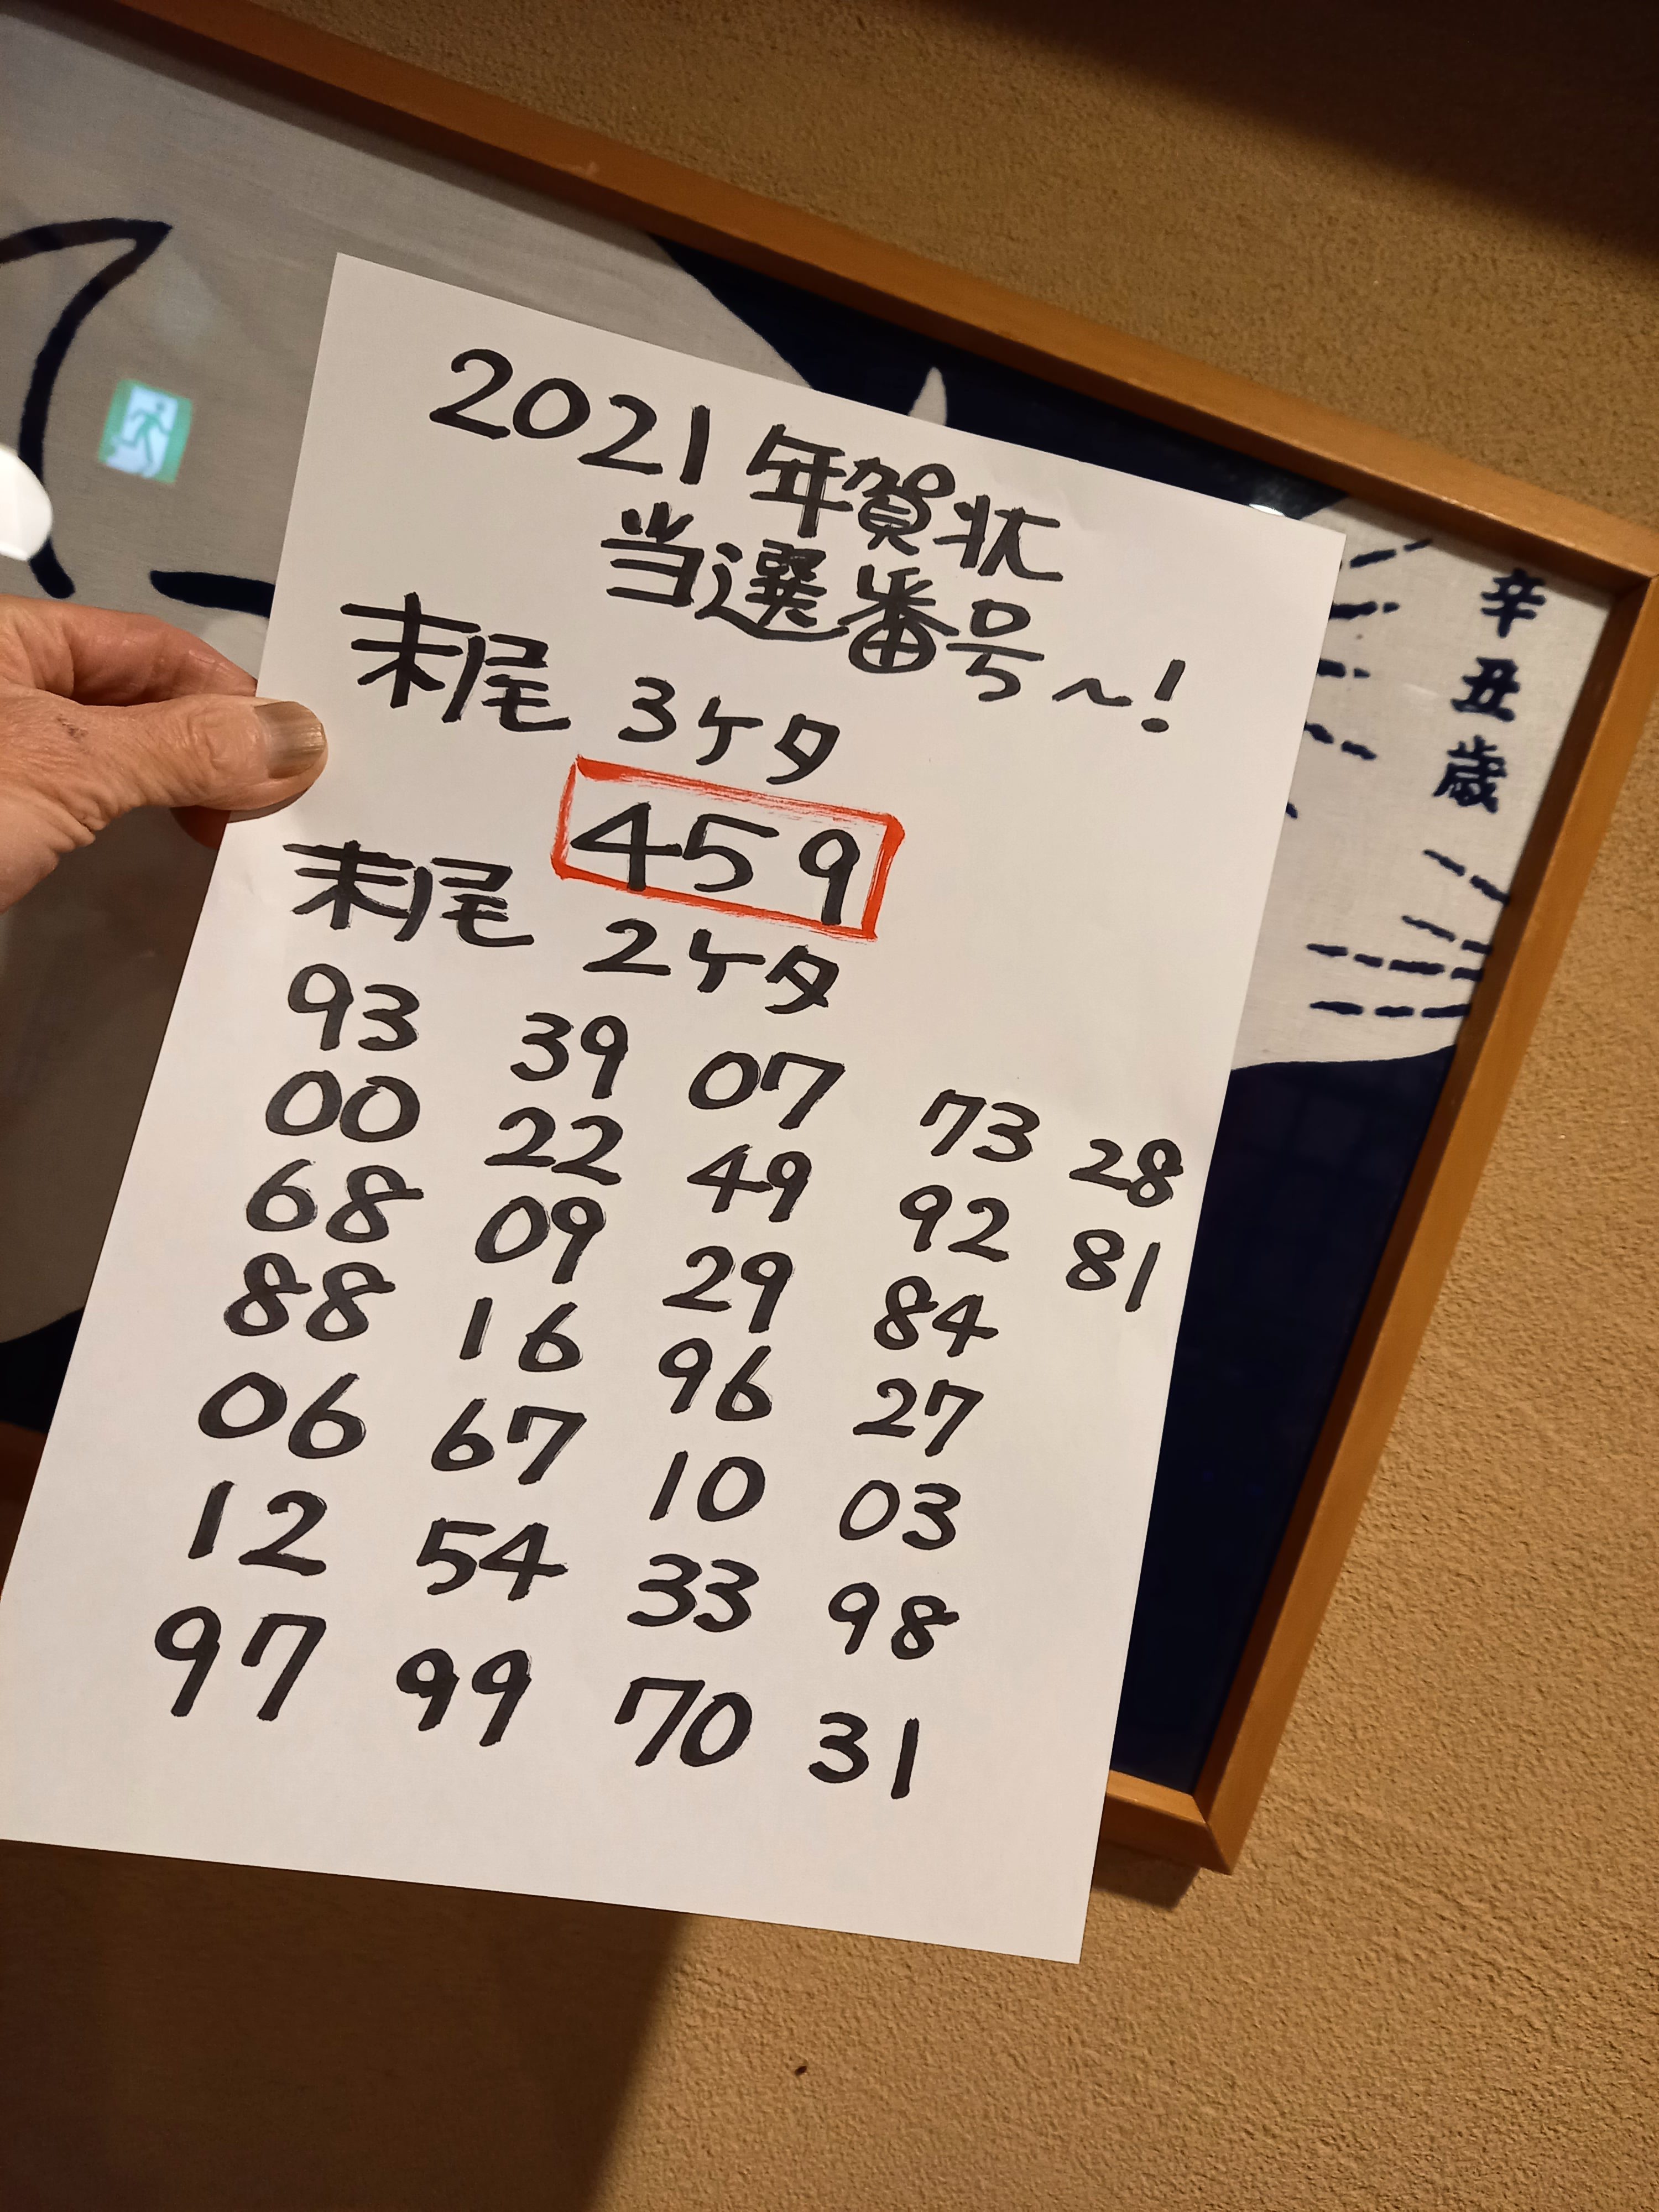 2021年賀状
当選番号～!
末尾 3ケタ
459
末尾 2ケタ
93 39 07 73 28
00 22 49 92 81
68 09 29 84
88 16 96 27
06 67 10 03
12 54 33 98
97 99 70 31
辛丑歳